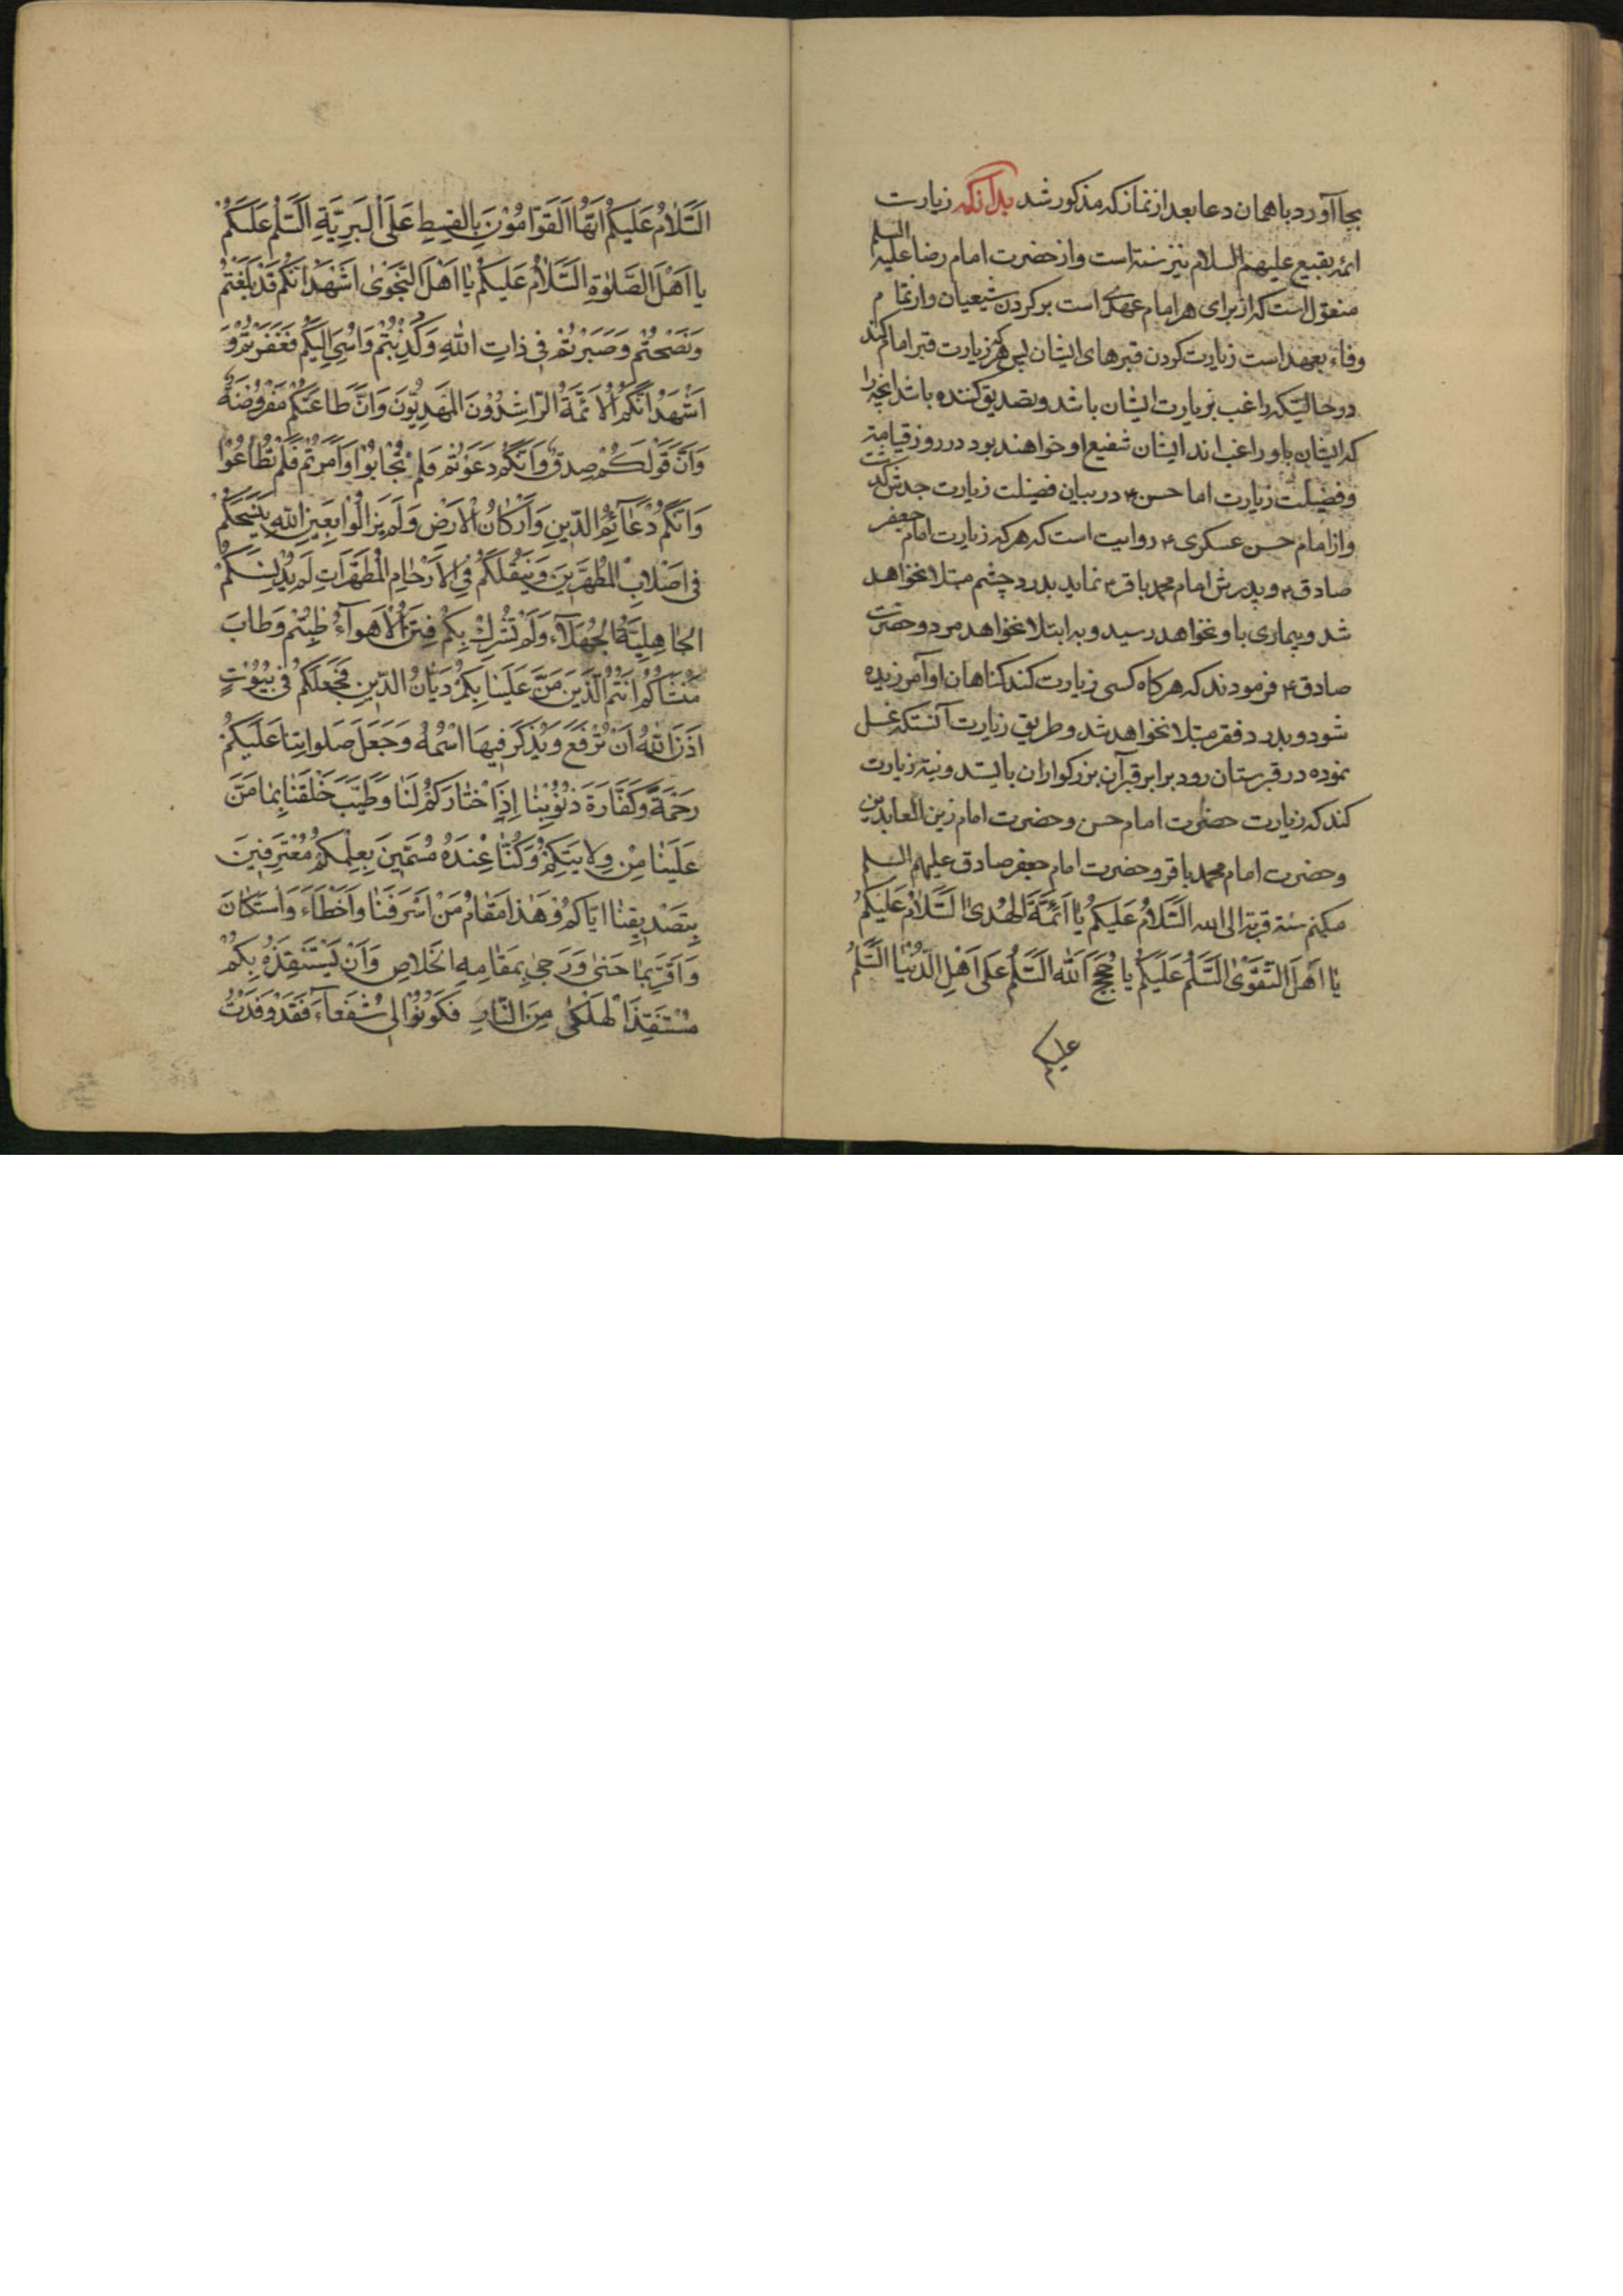 بجا آورد با همان دعا بعد از نماز که مذکور شد بدانکه زیارت
ائمه بقیع علیهم السلام نیز سنة است و از حضرت امام رضا علیه السلم
منقول است که از برای هر امام عهدی است بر کردن شیعیان و از تمام
وفاء بعهد است زیارت کردن قبرهای ایشان پس هرکه زیارت قبر امام کند
در حالتیکه راغب بزیارت ایشان باشد و تصدیق کننده باشد انچه را
که ایشان باو راغب اند ایشان شفیع او خواهند بود در روز قیامة
و فضیلت زیارت اما حسن ع در بیان فضیلت زیارت جدش گذشت
و از امام حسن عسکری ع روایت است که هر که زیارت امام جعفر
صادق ع و پدرش امام محمد باقر ع نماید بدرد چشم مبتلا نخواهد
شد و بیماری باو نخواهد رسید و به ابتلا نخواهد مرد و حضرت
صادق ع فرمودند که هر کاه کسی زیارت کند کناهان او آمرزیده
شود و بدرد فقر مبتلا نخواهد شد و طریق زیارت آنستکه غسل
نموده در قبرستان رود برابر قبر آن بزرکواران بایستد و نیة زیارت
کند که زیارت حضرت امام حسن و حضرت امام زین العابدین
و حضرت امام محمد باقر و حضرت امام جعفر صادق علیهم السلم
میکنم سنة قربة الی الله السَّلامُ عَلَیکُم یا اَئمَّةَ الهُدیٰ السَّلامُ عَلَیکُم
یا اَهلَ التَّقویٰ السَّلمُ عَلَیکُم یا حُجَجَ اللّٰه السَّلمُ عَلی اَهلِ الدُّنیا السَّلمُ
علیکم
السَّلامُ عَلَیکُم اَیّهَا القَوّامُونَ بِالقِسطِ عَلَی البَرِیَّةِ السَّلمُ عَلَیکُم
یا اَهلَ الصَّلوٰةِ السَّلامُ عَلَیکُم یا اَهلَ النَّجویٰ اَشهَدُ اَنَّکُم قَد بَلَّغتُم
وَنَصَحتُم وَصَبَرتُم فی ذاتِ اللّٰهِ وَکُذِّبتُم وَاُسِیَٔ اِلَیکُم فَغَفَرتُم وَ
اَشهَدُ اَنَّکُمُ الاَئمَّةُ الرّاشِدُونَ المَهدِیُّونَ وَاَنَّ طاعَتَکُم مَفرُوضَةٌ
وَاَنَّ قَولَکُم صِدقٌ وَاَنَّکُم دَعَوتُم فَلَم تُجابُوا وَاَمَرتُم فَلَم تُطاعُوا
وَاَنَّکُم دُعآئِمُ الدّینِ وَاَرکانُ الاَرضِ وَلَم یَزالُوا بِعَینِ اللّٰهِ یَنسَخُکُم
فی اَصلابِ المُطَهَّرینَ وَیَنقُلُکُم فِی الاَرحامِ المُطَهَّراتِ لَم یُدَنِّسکُم
الجاهِلِیَّةُ الجُهَلآءُ وَلَم تَشرَك بِکُم فِتَنُ الاَهوآءُ طِبتُم وَطابَ
مَنشَاکُم اَنتُمُ الَّذینَ مَنَّ عَلَینا بِکُم دَیّانُ الدّینِ فَجَعَلَکُم فی بُیُوتٍ
اَذِنَ اللّٰهُ اَن تُرفَعَ وَیُذکَرَ فیهَا اسمُهُ وَجَعَلَ صَلَواتِنا عَلَیکُم
رَحمَةً وَکَفّارَةً ذُنُوبِنا اِذَا اختارَکُم لَنا وَطَیَّبَ خَلقَنا بِما مَنَّ
عَلَینا مِن وِلایَتِکُم وَکُنّا عِندَهُ مُسَمّینَ بِعِلمِکُم مُعتَرِفینَ
بِتَصدیقِنا ایّاکُم وَهٰذا مَقامُ مَن اَسرَفَنا وَاَخطَآءَ وَاستَکانَ
وَاَقَرَّ بِما جَنیٰ وَرَجیٰ بِمَقامِهِ الخَلاصِ وَاَن یَستَنقِذَهُ بِکُم
مُستَنقِذُ الهَلکیٰ مِنَ النّارِ فَکُونُوا لی شُفَعآءَ فَقَد وَفَدتُ